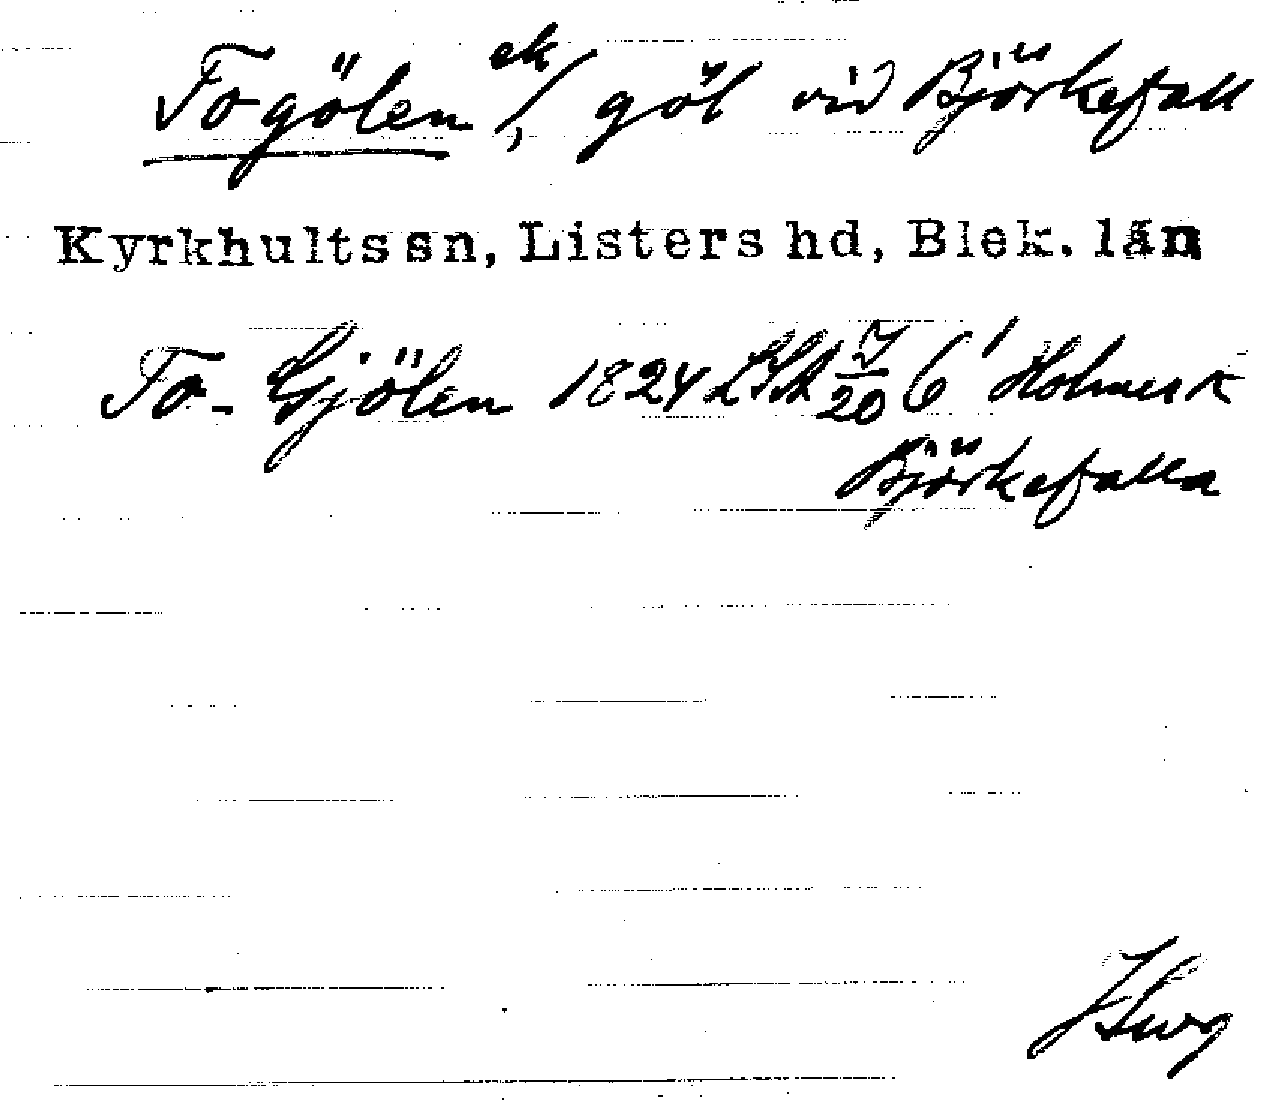 Togölen ek/, göl vid Björkefall
Kyrkhults sn, Listers hd, Blek. län
To-Gjölen 1824 LSA 7/20 6' Holmerk
Björkefalla